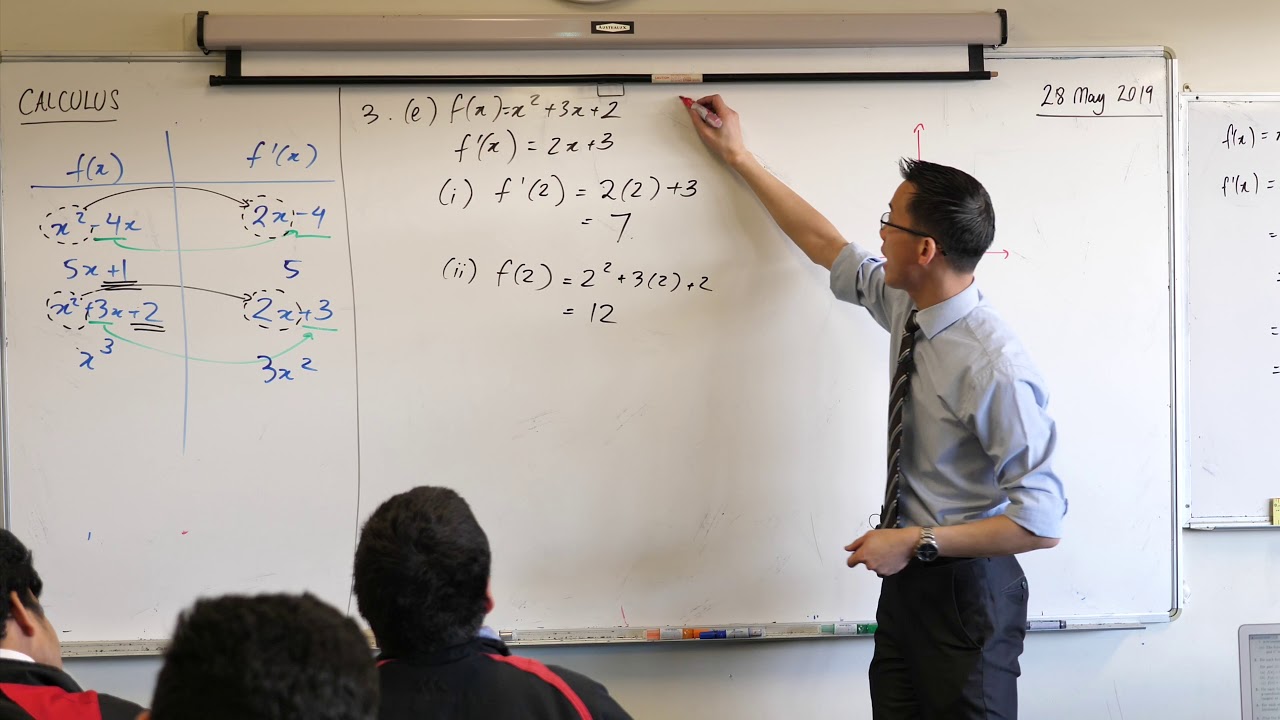 AUSTEALUX
CALCULUS
f(x) f'(x)
x² - 4x 2x - 4
5x + 1 5
x² + 3x + 2 2x + 3
x³ 3x²
3. (e) f(x) = x² + 3x + 2
f'(x) = 2x + 3
(i) f'(2) = 2(2) + 3
= 7
(ii) f(2) = 2² + 3(2) + 2
= 12
28 May 2019
f(x) =
f'(x) =
=
=
=